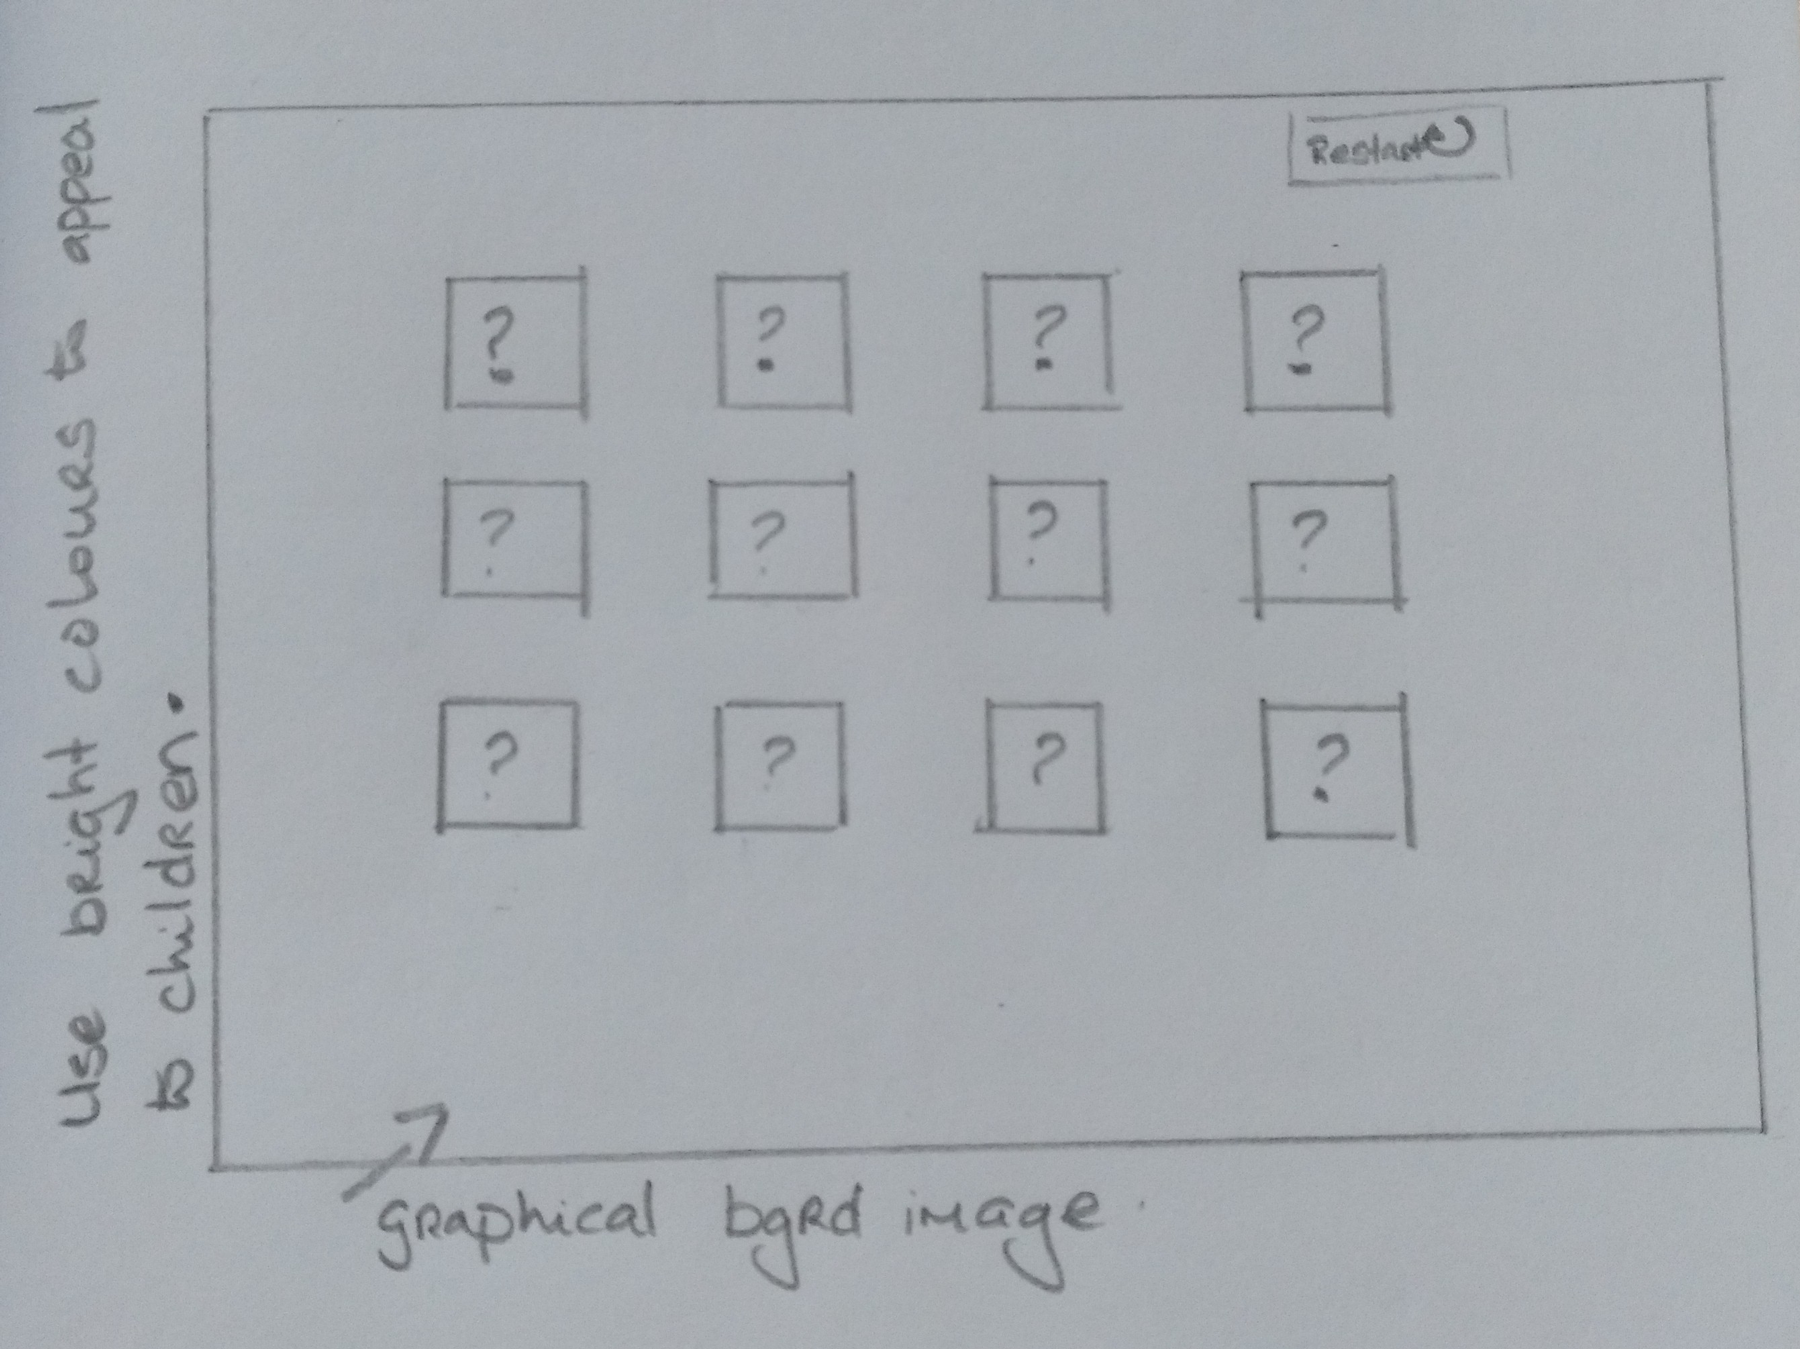 Use bright colours to appeal
to children.
Restart
? ? ? ?
? ? ? ?
? ? ? ?
graphical bgrd image.